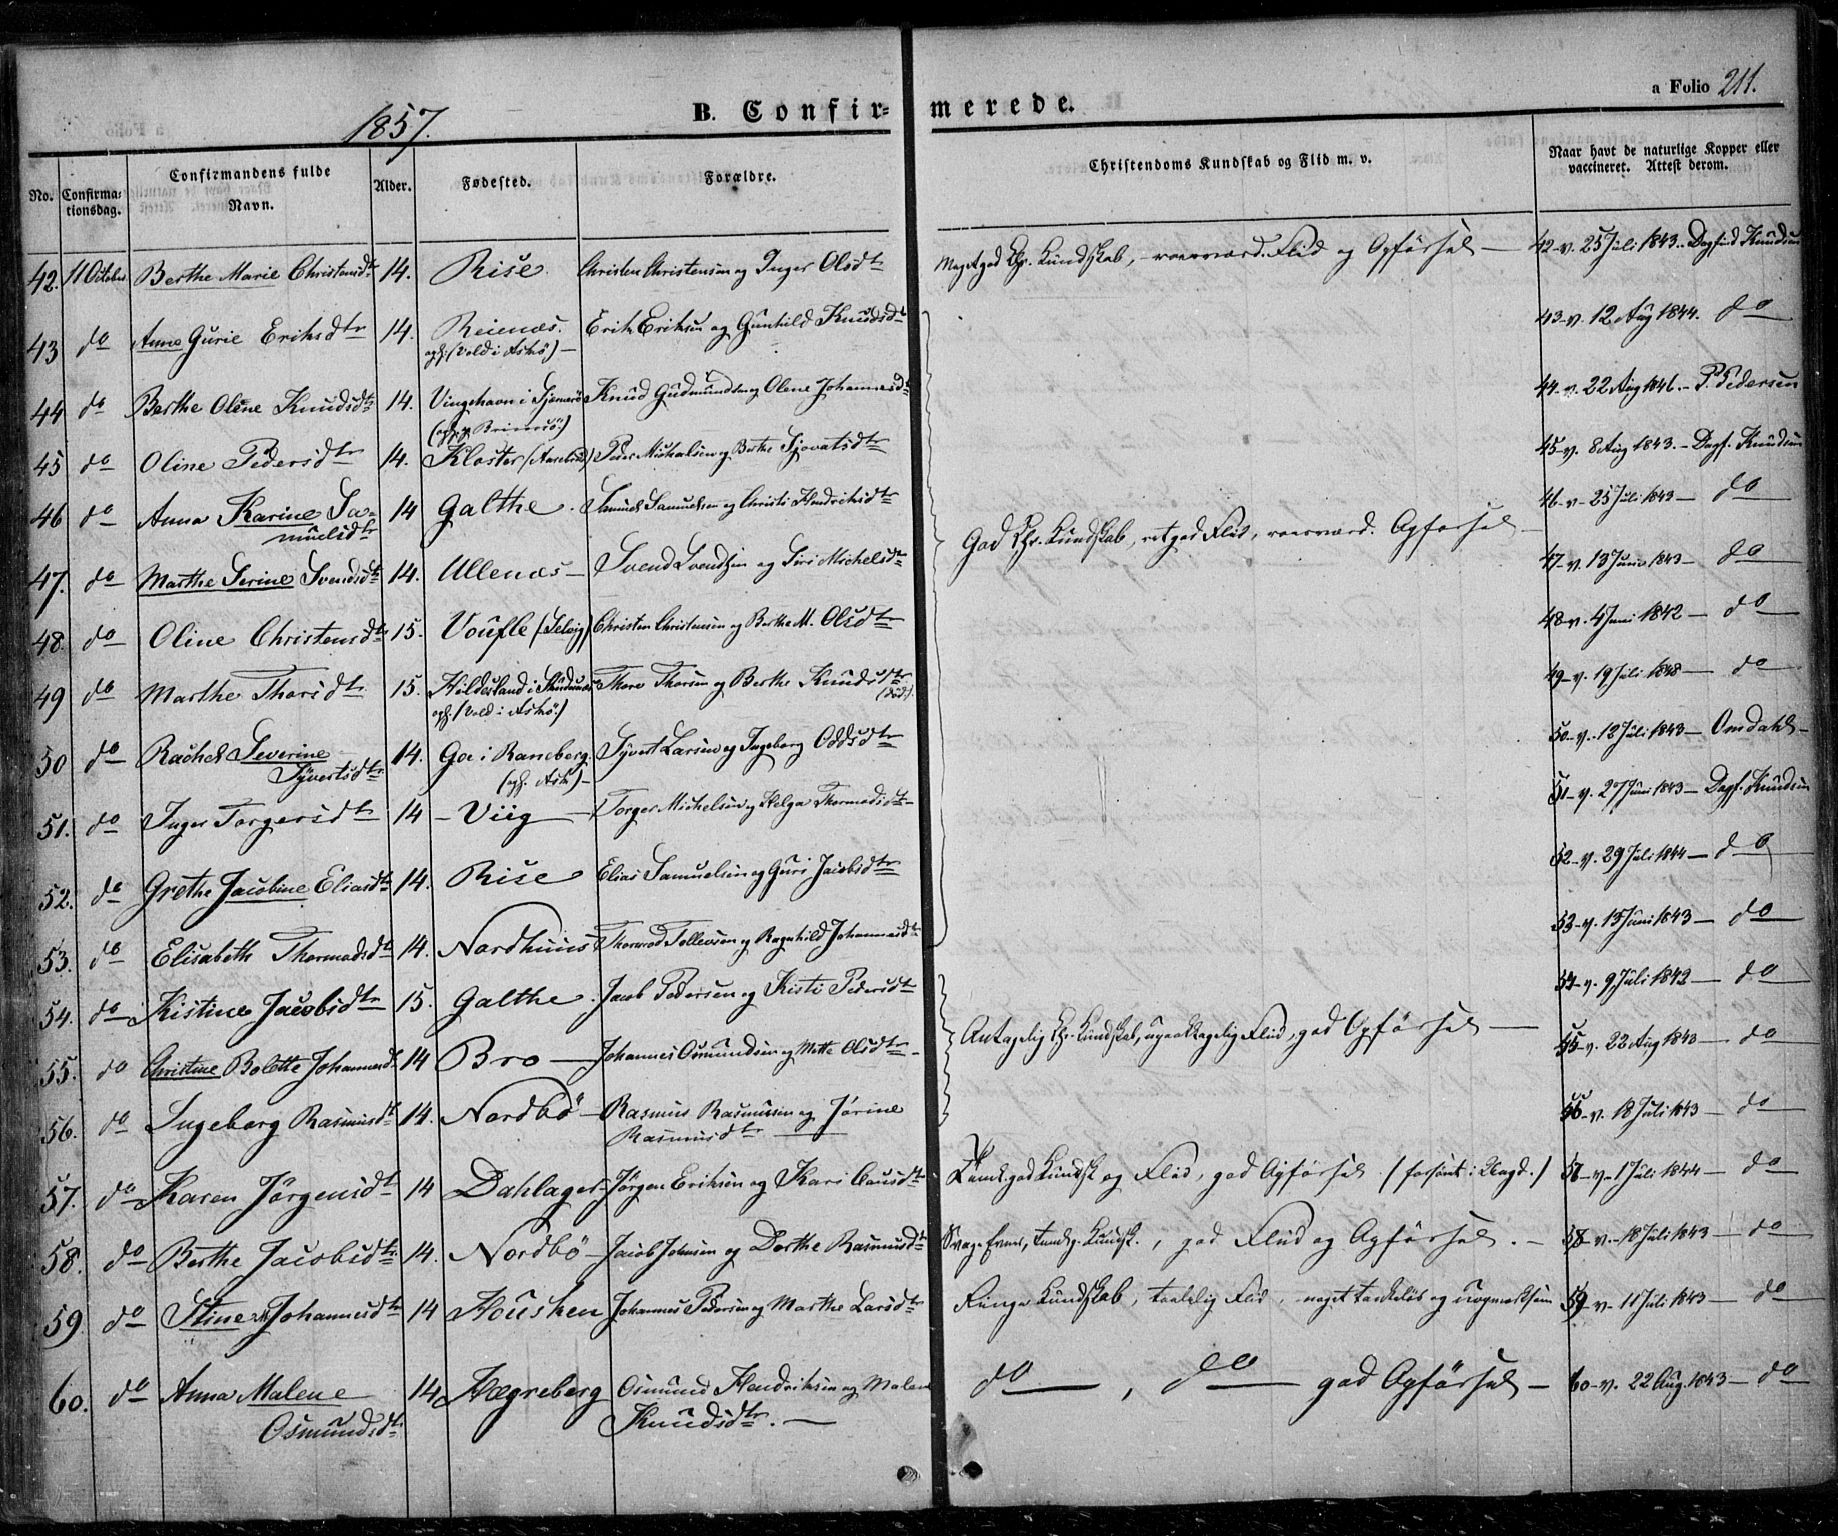 1857.
B. Confir-
merede.
a Folio 211.
No.
Confirma-
tionsdag.
Confirmandens fulde
Navn.
Alder.
Fødested.
Forældre.
Christendoms Kundskab og Flid m. v.
Naar havt de naturlige Kopper eller
vaccineret. Attest derom.
42. 11 October Berthe Marie Christensdtr 14. Rise. Christen Christensen og Inger Olsdtr Meget god Chr. Kundskab, roesværd. Flid og Opførsel — 42-v. 25 Juli 1843.- Dagfind Knudsen
43 do Anne Gurie Eriksdtr 14. Reienæs. Erik Eriksen og Gunhild Knudsdtr 43-v. 12 Aug 1844. do
oph. (Vold i Askø) —
44 do Berthe Oline Knudsdtr 14. Vingehavn i Sjernerø Knud Gudmundsen og Olene Johannesdtr 44-v. 22 Aug 1846.- P. Pedersen
45 do Oline Pedersdtr 14. Kloster Peder Michalsen og Berthe Sjovatsdtr 45-v. 8 Aug 1843.- Dagf. Knudsen
46 do Anna Karine Sa- 14 Galthe. Samuel Samuelsen og Christi Hendriksdtr 46-v. 25 Juli 1843 — do
muelsdtr
God Chr. Kundskab, ret god Flid, roesværd. Opførsel —
47. do Marthe Serine Svendsdtr 14. Ullenæs — Svend Svendsen og Siri Michelsdtr 47-v. 13 Juni 1843 — do
48. do Oline Christensdtr 15. Voufle (Selvig) Christen Christensen og Berthe M. Olsdtr 48-v. 4 Juni 1842 — do
49 do Marthe Thorsdtr 15. Hildesland i Skudenæs Thore Thorsen og Berthe Knudsdtr 49-v. 19 Juli 1848 — do
oph. (Vold i Askø.) (død).
50 do Rachel Severine 14. Goe i Randeberg. Syvert Larsen og Ingeborg Oddsdtr 50-v. 12 Juli 1843 — Omdahl —
Syvertsdtr (oph. Askø) —
51. do Inger Torgersdtr 14 — Viig — Torger Michelsen og Helga Thormodsdtr 51-v. 27 Juni 1843 — Dagf. Knudsen
52. do Grethe Jacobine Eliasdtr 14. Rise Elias Samuelsen og Guri Jacobsdtr 52-v. 29 Juli 1844 — do
53. do Elisabeth Thormodsdtr 14. Nordhuus Thormod Tollevsen og Ragnhild Johannesdtr 53-v. 13 Juni 1843 — do
54. do Kistine Jacobsdtr 15. Galthe. Jacob Pedersen og Kisti Pedersdtr 54-v. 9 Juli 1842 — do
Antagelig Chr. Kundskab, upaaklagelig Flid, god Opførsel —
55. do Christine Bolette Johannesdtr 14 Bro — Johannes Osmundsen og Mette Olsdtr — 55-v. 22 Aug 1843 — do
56. do Ingeborg Rasmusdtr 14. Nordbø — Rasmus Rasmussen og Jørine 56-v. 18 Juli 1843 — do
Rasmusdtr
57. do Karen Jørgensdtr 14 Dahlager — Jørgen Eriksen og Kari god Kundsk. og Flid, god Opførsel 57-v. 1 Juli 1844 — do
58. do Berthe Jacobsdtr 14. Nordbø — Jacob Johnsen og Dorthe Rasmusdtr Svage Evner, Kundsk., god Flid og Opførsel. — 58-v. 18 Juli 1843 — do
59. do Stine Johannesdtr 14 Housken Johannes Pedersen og Marthe Larsdtr Ringe Kundskab, taalelig Flid, noget tankeløs og uopmærksom 59-v. 11 Juli 1843 — do
60. do Anna Malene 14 Hægreberg Osmund Hendriksen og Malene do — , do — god Opførsel — 60-v. 22 Aug. 1843 — do
Osmundsdtr Knudsdtr. —